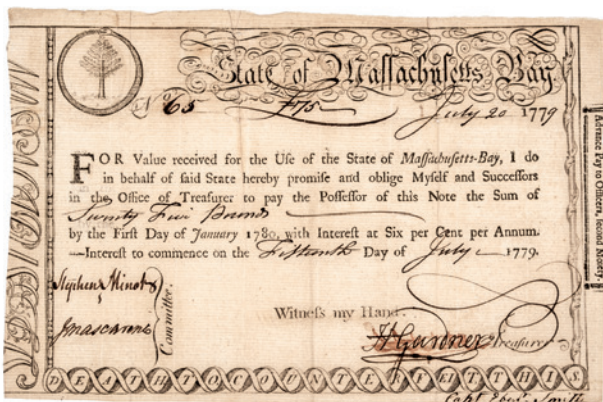 State of Maſſachuſetts Bay
No 65 £75 July 20 1779
FOR Value received for the Uſe of the State of Maſſachuſetts-Bay, I do
in behalf of ſaid State hereby promiſe and oblige Myſelf and Succeſſors
in the Office of Treaſurer to pay the Poſſeſſor of this Note the Sum of
Seventy Five Pounds
by the Firſt Day of January 1780, with Intereſt at Six per Cent per Annum.
—Intereſt to commence on the Fifteenth Day of July 1779.
Stephen Minot
Jmascarene
Committee.
Witneſs my Hand.
H Gardner Treaſurer
DEATH TO COUNTERFEIT THIS
Capt Ebenr Smith
Advance Pay to Officers, ſecond Moiety.